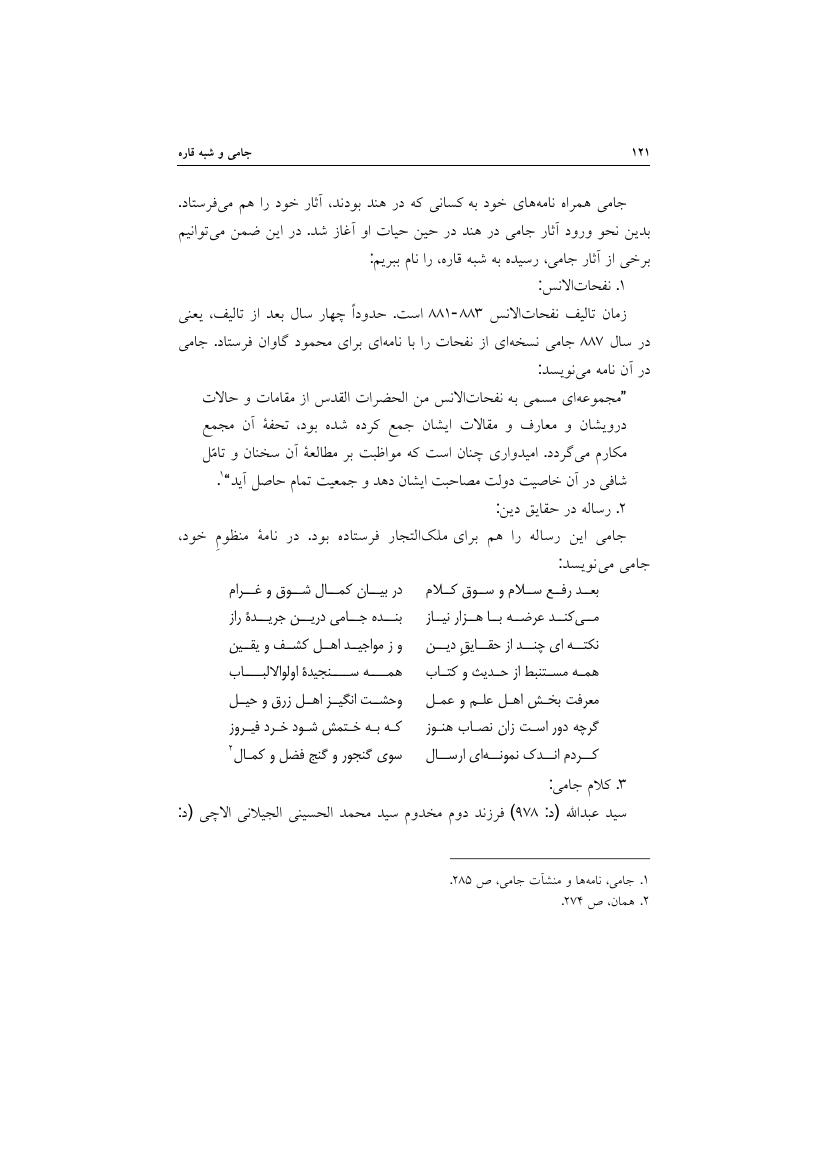 ۱۲۱ جامی و شبه قاره
جامی همراه نامه‌های خود به کسانی که در هند بودند، آثار خود را هم می‌فرستاد.
بدین نحو ورود آثار جامی در هند در حین حیات او آغاز شد. در این ضمن می‌توانیم
برخی از آثار جامی، رسیده به شبه قاره، را نام ببریم:
۱. نفحات‌الانس:
زمان تالیف نفحات‌الانس ۸۸۳-۸۸۱ است. حدوداً چهار سال بعد از تالیف، یعنی
در سال ۸۸۷ جامی نسخه‌ای از نفحات را با نامه‌ای برای محمود گاوان فرستاد. جامی
در آن نامه می‌نویسد:
”مجموعه‌ای مسمی به نفحات‌الانس من الحضرات القدس از مقامات و حالات
درویشان و معارف و مقالات ایشان جمع کرده شده بود، تحفهٔ آن مجمع
مکارم می‌گردد. امیدواری چنان است که مواظبت بر مطالعهٔ آن سخنان و تامّل
شافی در آن خاصیت دولت مصاحبت ایشان دهد و جمعیت تمام حاصل آید“۱.
۲. رساله در حقایق دین:
جامی این رساله را هم برای ملک‌التجار فرستاده بود. در نامهٔ منظومِ خود،
جامی می‌نویسد:
بعد رفع سلام و سوق کلام در بیان کمال شوق و غرام
می‌کند عرضه با هزار نیاز بنده جامی درین جریدهٔ راز
نکته ای چند از حقایقِ دین و ز مواجید اهل کشف و یقین
همه مستنبط از حدیث و کتاب همه سنجیدهٔ اولوالالباب
معرفت بخش اهل علم و عمل وحشت انگیز اهل زرق و حیل
گرچه دور است زان نصاب هنوز که به ختمش شود خرد فیروز
کردم اندک نمونه‌ای ارسال سوی گنجور و گنج فضل و کمال۲
۳. کلام جامی:
سید عبدالله (د: ۹۷۸) فرزند دوم مخدوم سید محمد الحسینی الجیلانی الاچی (د:
۱. جامی، نامه‌ها و منشآت جامی، ص ۲۸۵.
۲. همان، ص ۲۷۴.